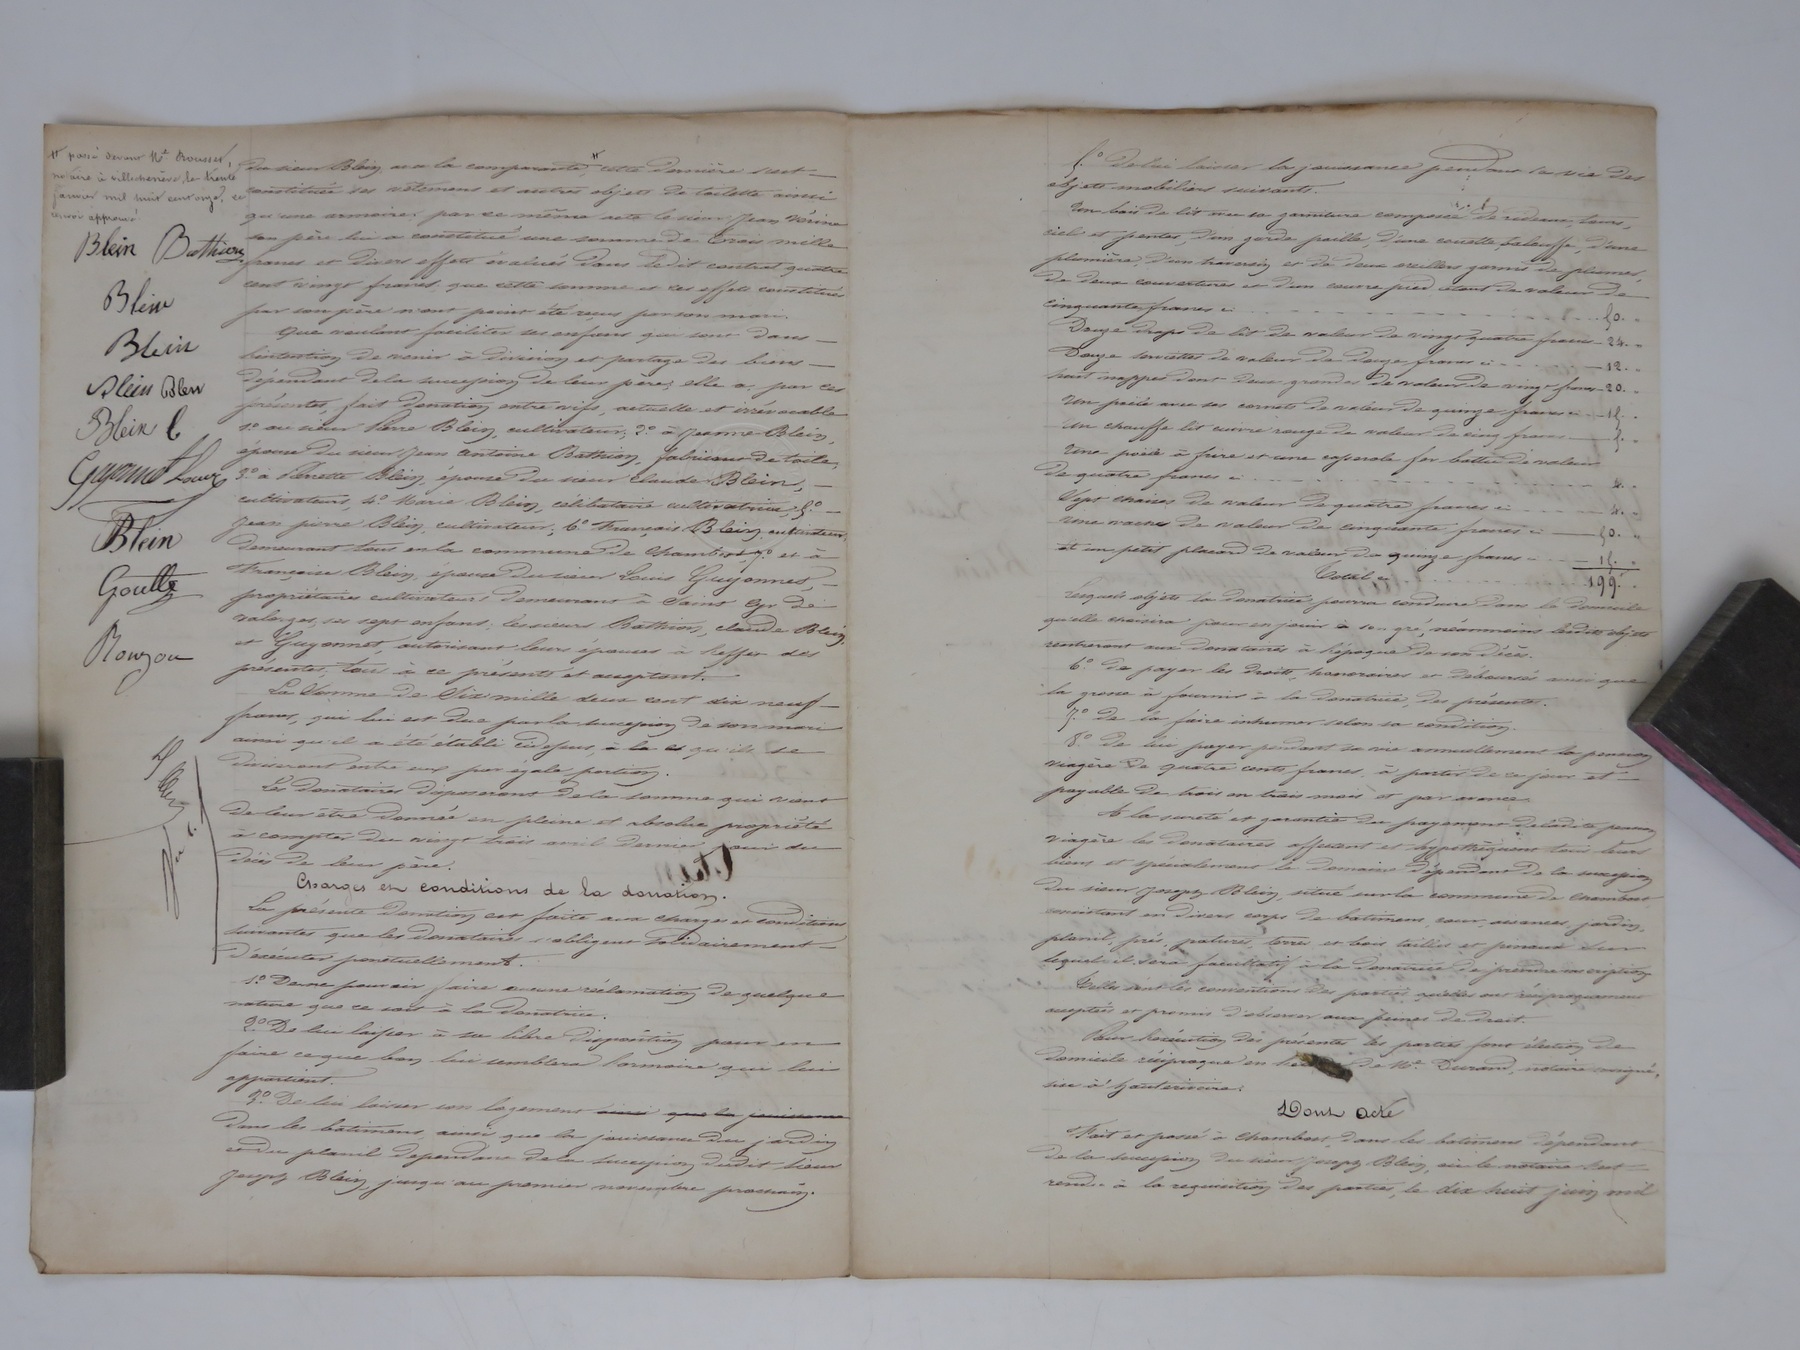 # passé devant Me Rousset,
notaire à villechenève, le trente
janvier mil huit cent onze, ce
renvoi approuvé
Blein Bathion
Blein
Blein
Blein Blein
Blein C
Guyonnet Louis
Blein
Goutte
du sieur Blein avec la comparante, # cette dernière s'est
constituée ses vêtemens et autres objets de toilette ainsi
qu'une armoire; par ce même acte le sieur Jean
son père lui a constitué une somme de trois mille
francs et divers effets évalués dans ledit contrat quatre
cent vingt francs, que cette somme et ces effets constitués
par son père n'ont point été reçus par son mari.
Que voulant faciliter ses enfans qui sont dans
l'intention de venir à division et partage des biens
dépendant de la succession de leur père, elle a, par ces
présentes, fait donation entre vifs, actuelle et irrévocable
1o au sieur Pierre Blein, cultivateur; 2o à Jeanne Blein,
épouse du sieur Jean Antoine Bathion, fabricant de toile;
3o à Pierrette Blein, épouse du sieur Claude Blein,
cultivateurs, 4o Marie Blein, célibataire cultivatrice 5o
Jean pierre Blein, cultivateur; 6o François Blein, cultivateur,
demeurant tous en la commune de Chambost, 7o et à
Françoise Blein, épouse du sieur Louis Guyonnet,
propriétaires cultivateurs demeurant à Saint Cyr de
valorges, ses sept enfans; les sieurs Bathion, Claude Blein
et Guyonnet, autorisant leurs épouses à l'effet des
présentes, tous à ce présents et acceptant.
La Somme de Six mille deux cent dix neuf
francs, qui lui est due par la succession de son mari
ainsi qu'il a été établi ci dessus, à la qu'ils se
diviseront entre eux par égale portion.
Les donataires disposeront de la somme qui vient
de leur être donnée en pleine et absolue propriété
à compter du vingt trois avril dernier, jour du
décès de leur père.
Charges et conditions de la donation.
La présente donation est faite aux charges et conditions
suivantes que les donataires s'obligent solidairement
d'exécuter ponctuellement.
1o De ne pouvoir faire aucune réclamation de quelque
nature que ce soit à la donatrice.
2o De lui laisser à sa libre disposition pour en
faire ce que bon lui semblera l'armoire qui lui
appartient.
3o De lui laisser son logement ainsi que la jouissance
dans les bâtimens, ainsi que la jouissance du jardin
et du planil dépendant de la succession dudit sieur
Joseph Blein, jusqu'au premier novembre prochain.
5o De lui laisser la jouissance pendant sa vie des
objets mobiliers suivants.
Un bois de lit avec sa garniture composée de rideaux, tours,
ciel et pentes, d'un garde paille, d'une couette balouffe, d'une
plumière, d'un traversin et de deux oreillers garnis de plumes,
de deux couvertures et d'un couvre pied étant de valeur de
cinquante francs ci 50.
Douze draps de lit de valeur de vingt quatre francs 24.
Douze serviettes de valeur de douze francs ci 12.
huit nappes dont deux grandes de valeur de vingt francs 20.
Un poële avec ses cornets de valeur de quinze francs ci 15.
Un chauffe lit cuivre rouge de valeur de cinq francs 5.
Une poële à frire et une casserole fer battu de valeur
de quatre francs ci 4.
Sept chaises de valeur de quatre francs ci 4.
Une vache de valeur de cinquante francs ci 50.
et un petit placard de valeur de quinze francs ci 15.
Total 199.
lesquels objets la donatrice pourra conduire dans le domicile
qu'elle choisira pour en jouir à son gré, néanmoins lesdits objets
rentreront aux donataires à l'époque de son décès.
6o de payer les droits, honoraires et déboursés ainsi que
la grosse à fournir à la donatrice, des présentes.
7o de la faire inhumer selon sa condition.
8o de lui payer pendant sa vie annuellement la pension
viagère de quatre cents francs, à partir de ce jour et
payable de trois en trois mois et par avance.
A la sureté et garantie du payement de ladite pension
viagère les donataires affectent et hypothèquent tous leurs
biens et spécialement le domaine dépendant de la succession
du sieur Joseph Blein, situé sur la commune de Chambost,
consistant en divers corps de bâtimens, cour, aisances, jardin,
planil, prés, patures, terres et bois taillis et pineaux sur
lequel il sera facultatif à la donatrice de prendre inscription
Telles sont les conventions des parties qu'elles ont réciproquement
acceptées et promis d'observer aux peines de droit.
Pour l'exécution des présentes les parties font élection de
domicile réciproque en de Me Durand, notaire
sise à Hauterivoire.
Dont Acte
Fait et passé à Chambost, dans les bâtimens dépendant
de la succession du sieur Joseph Blein, où le notaire s'est
rendu à la requisition des parties, le dix huit juin mil